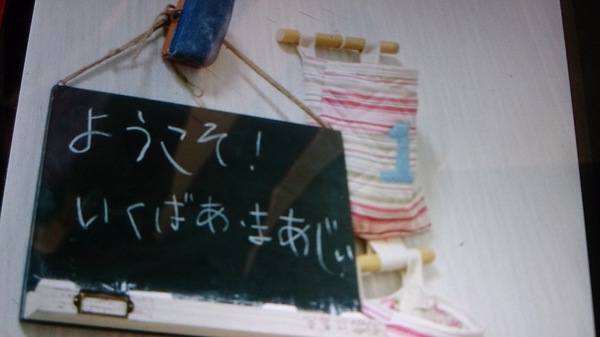 ようこそ!
いくばぁ・まあじぃ
1